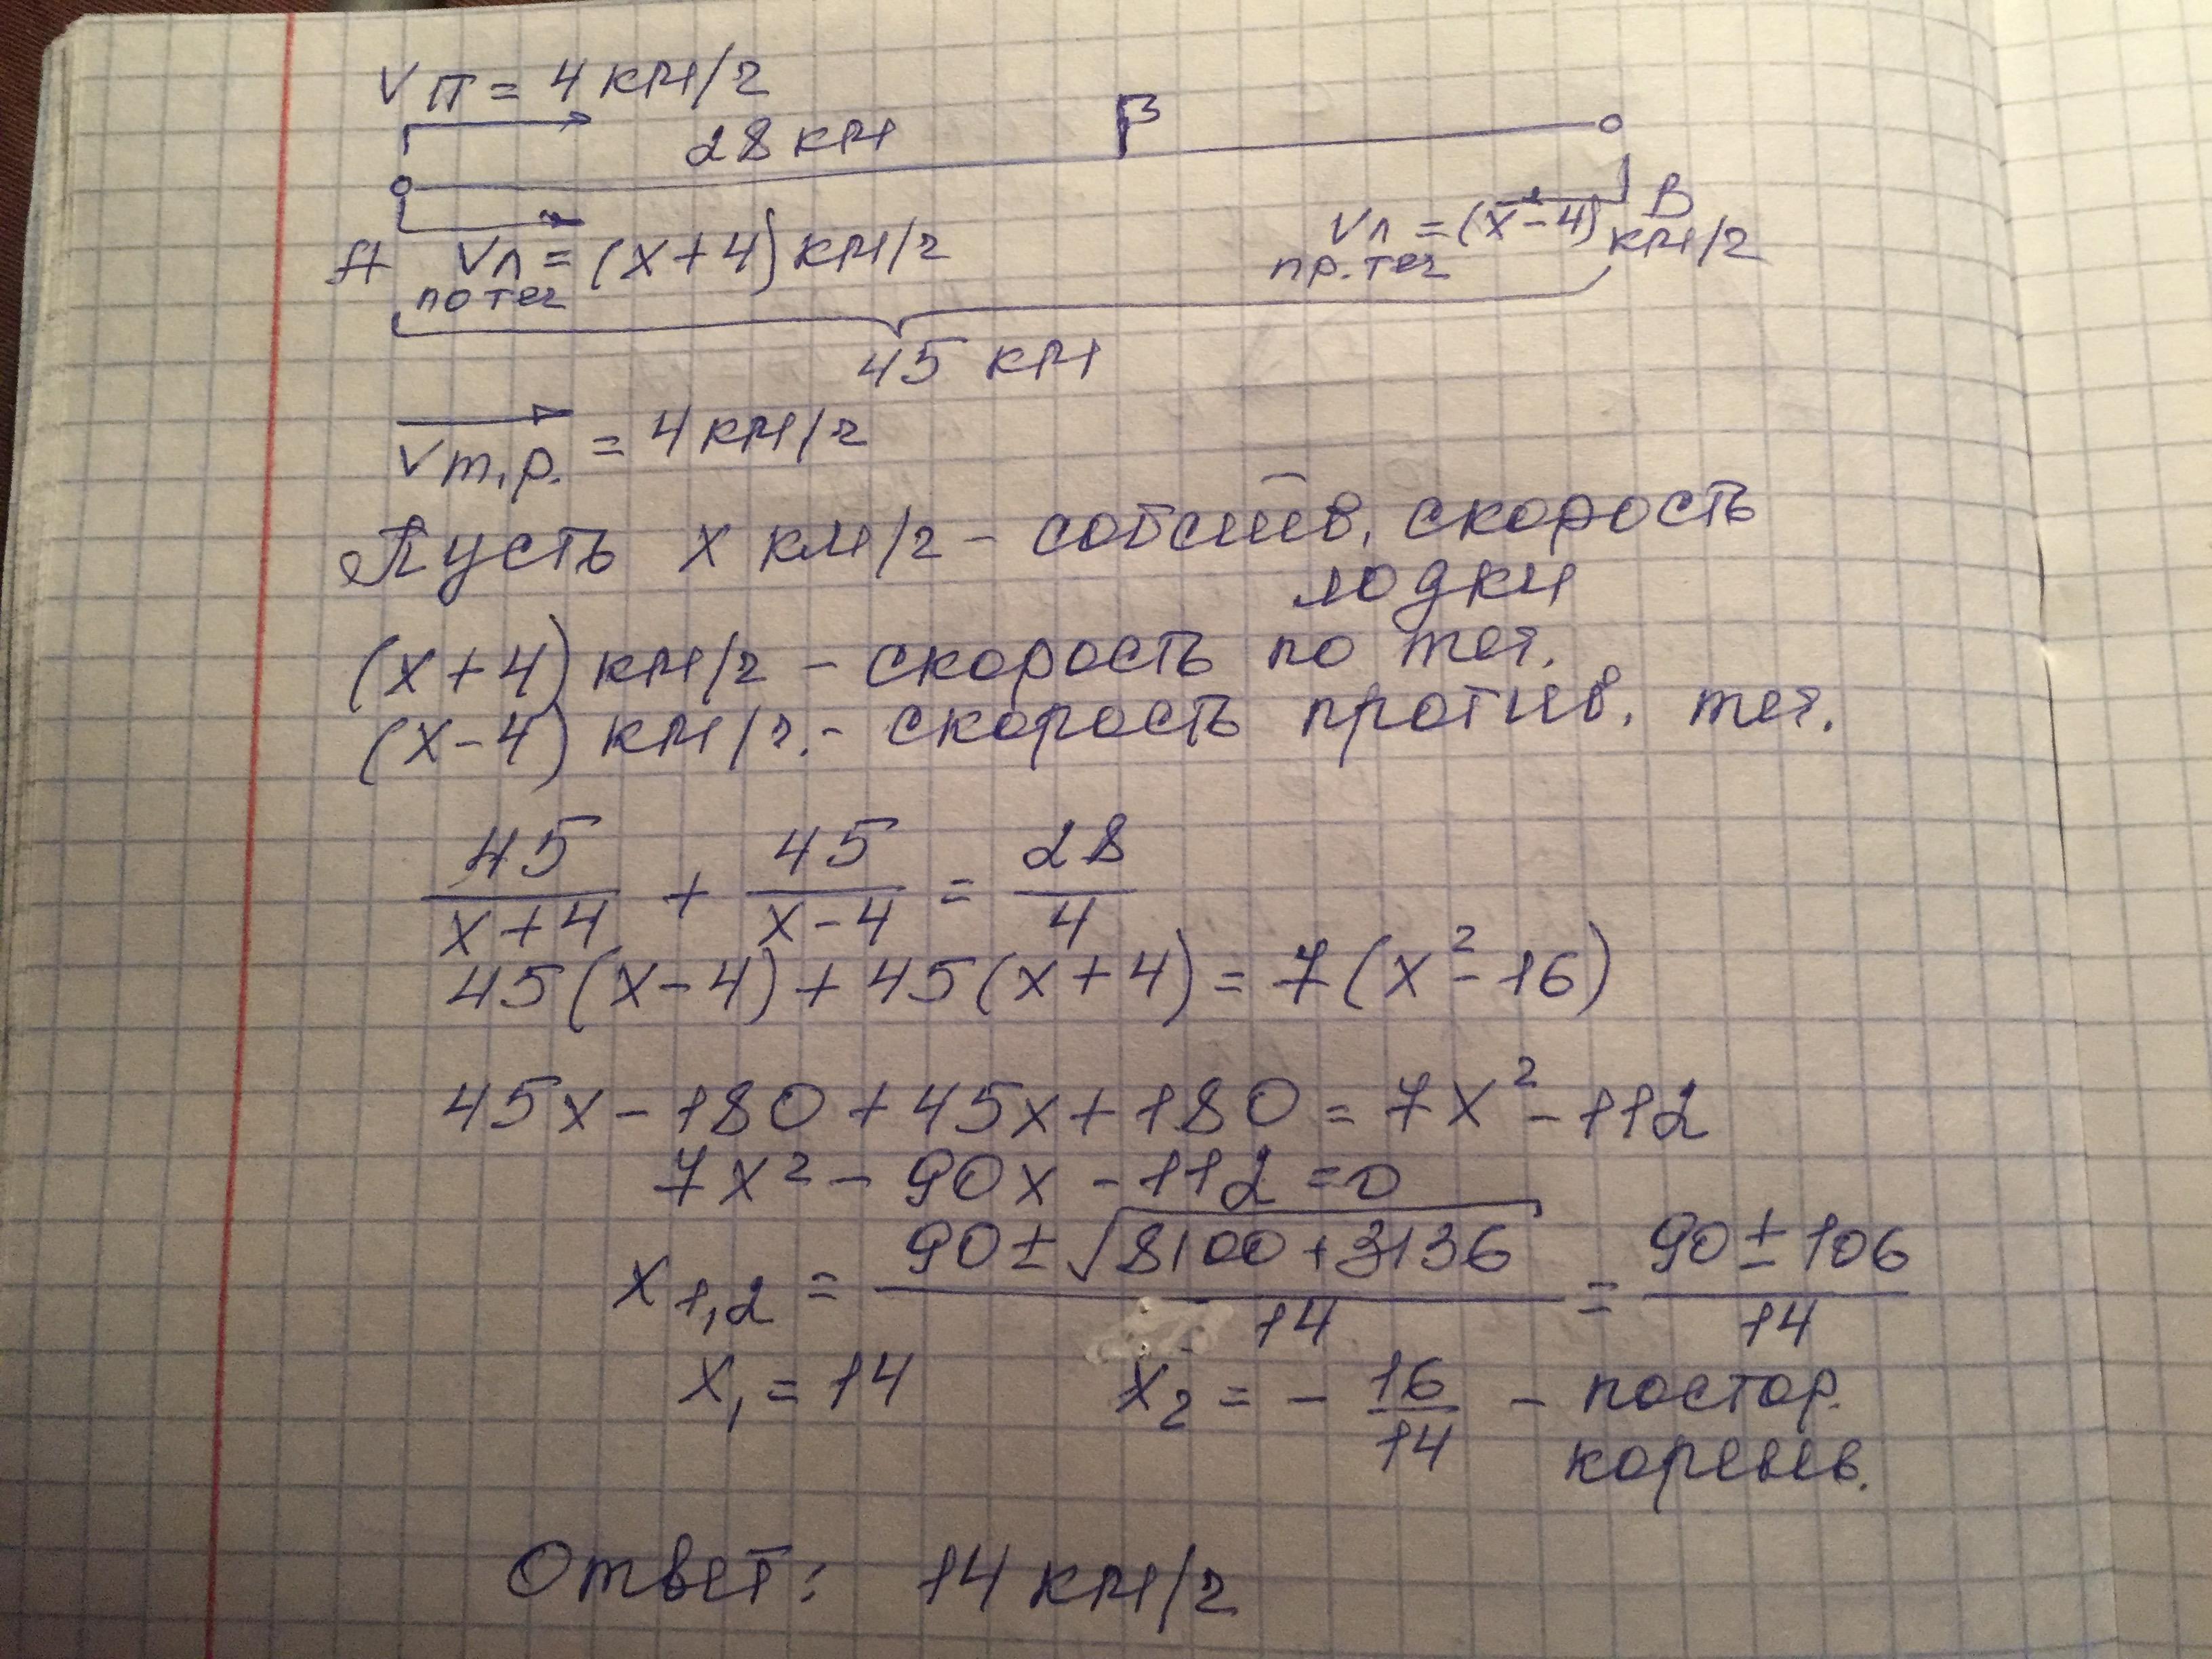 Vп = 4 км/ч
28 км
A
Vл = (x+4) км/ч
по теч
Vл = (x-4) км/ч
пр. теч
B
45 км
Vт.р. = 4 км/ч
Пусть x км/ч - собств. скорость
лодки
(x+4) км/ч - скорость по теч.
(x-4) км/ч. - скорость против. теч.
45/(x+4) + 45/(x-4) = 28/4
45(x-4)+45(x+4) = 7(x²-16)
45x-180+45x+180 = 7x²-112
7x²-90x-112=0
x1,2 = (90±√(8100+3136))/14 = (90±106)/14
x1 = 14 x2 = -16/14 - постор.
Ответ: 14 км/ч